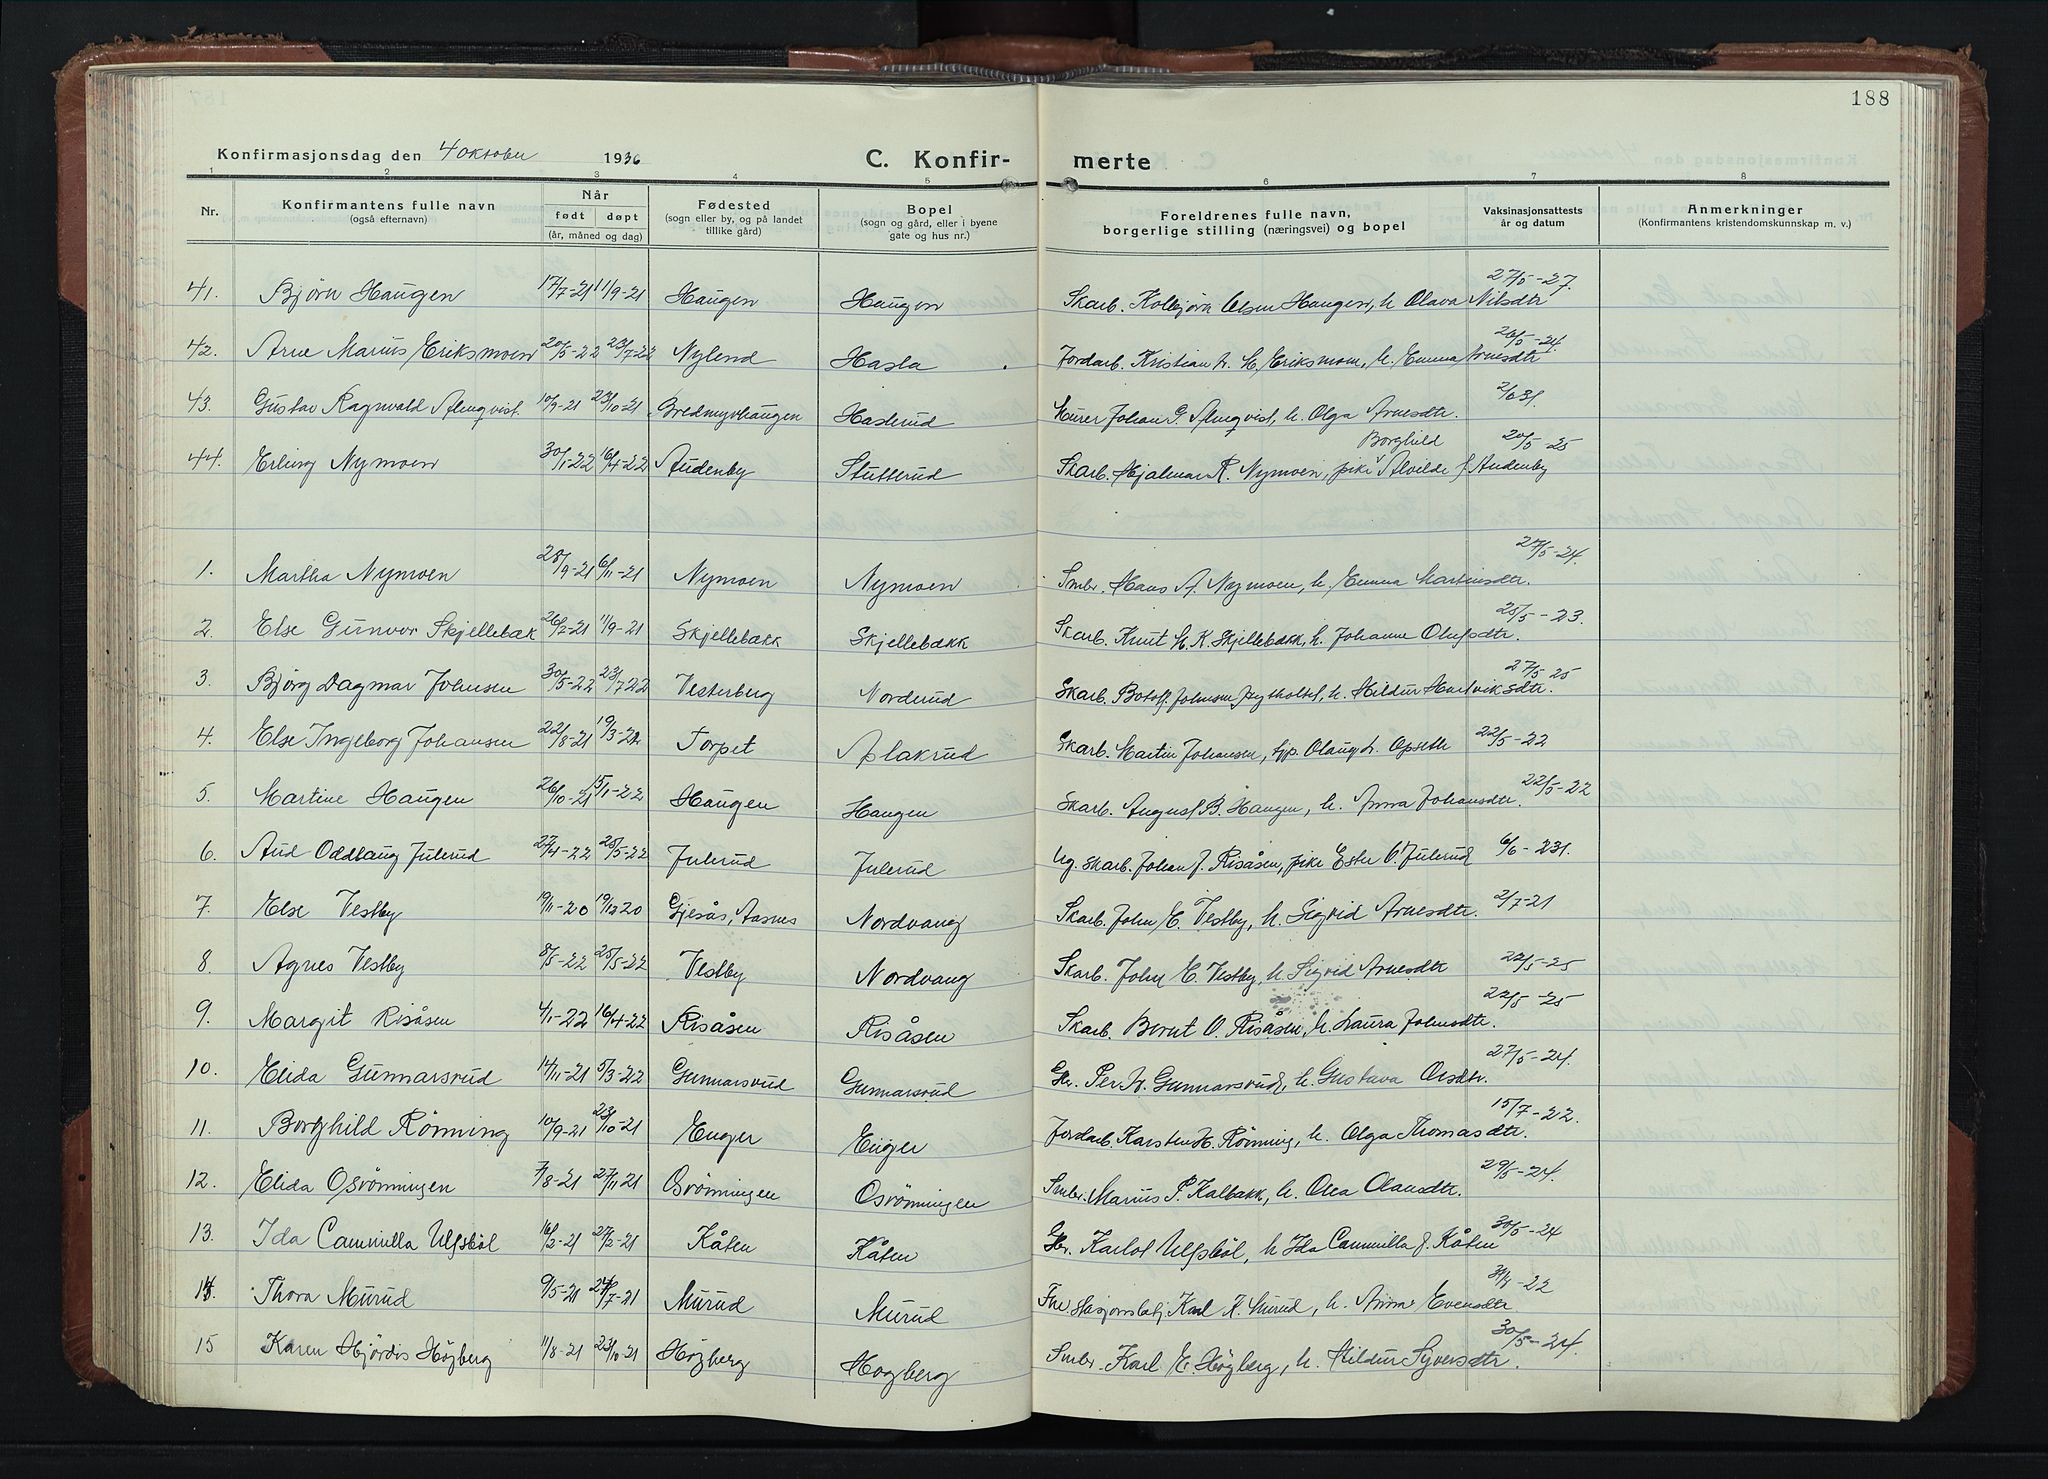 188
Konfirmasjonsdag den 4 oktober 1936 C. Konfir- merte
1 2 3 4 5 6 7 8
Nr. Konfirmantens fulle navn (også efternavn) Når født døpt (år, måned og dag) Fødested (sogn eller by, og på landet tillike gård) Bopel (sogn og gård, eller i byene gate og hus nr.) Foreldrenes fulle navn, borgerlige stilling (næringsvei) og bopel Vaksinasjonsattests år og datum Anmerkninger (Konfirmantens kristendomskunnskap m. v.)
41. Bjørn Haugen 17/7-21 11/9-21 Haugen Haugen Skarb. Kolbjørn Olsen Haugen, h. Olava Nilsdtr 27/5-27.
42. Arne Marius Eriksmoen 20/5-22 23/7-22 Nylend Hasla Jordarb. Kristian H. Eriksmoen, h. Emma Arnesdtr 20/5-24.
43. Gustav Ragnvald Almqvist. 10/9-21 23/10-21 Bredmyrhaugen Haslerud Murer Johan G. Almqvist, h. Olga Arnesdtr. 2/6 31.
44. Erling Nymoen 30/1-22 16/4-22 Audenby Stutterud Skarb. Hjalmar R. Nymoen, pike Borghild Alvilde f. Audenby 20/5-25
1. Martha Nymoen 28/9-21 6/11-21 Nymoen Nymoen Smbr. Hans A. Nymoen, h. Emma Martinsdtr. 27/5-24.
2. Else Gunvor Skjellebæk 26/2-21 11/9-21 Skjellebækk Skjellebækk Skarb. Knut H. K. Skjellebækk, h. Johanne Olufsdtr. 25/5-23.
3. Bjørg Dagmar Johnsen 30/5-22 23/7 22 Vesterberg Norderud Skarb. Botolf Johnsen, h. Hildur Hartviksdtr. 27/5 25
4. Else Ingeborg Johansen 22/8-21 19/3-22 Torpet Aplakrud Skarb. Martin Johansen, Olaug Opseth 22/5-22
5. Martine Haugen 26/10-21 15/1-22 Haugen Haugen Skarb. August B. Haugen, h. Anna Johansdtr. 22/5-22
6. Aud Oddlaug Julerud 27/4-22 25/5-22 Julerud Julerud Ug. skarb. Johan J. Risåsen, pike Ester O. Julerud 6/6-231.
7. Else Vestby 19/11-20 19/12 20 Gjesås, Aasnes Nordvang Skarb. John E. Vestby, h. Sigrid Arnesdtr. 2/7-21
8. Agnes Vestby 8/5-22 25/5-22 Vestby Nordvang Skarb. John E. Vestby, h. Sigrid Arnesdtr 22/5-25
9. Margit Risåsen 4/1-22 16/4-22 Risåsen Risåsen Skarb. Bernt O. Risåsen, h. Laura Johnsdtr. 22/5-25
10. Elida Gunnarsrud 14/11-21 5/3-22 Gunnarsrud Gunnarsrud Gbr. Per H. Gunnarsrud, h. Gustava Olsdtr. 27/5-24.
11. Borghild Rönning 10/9-21 23/10-21 Enger Enger Jordarb. Karsten H. Rönning, h. Olga Thomasdtr. 15/7-22.
12. Elida Osrönningen 7/8-21 27/11-21 Osrönningen Osrönningen Smbr. Marius P. Kalbakk, h. Olea Olausdtr. 29/5-24.
13. Ida Cammilla Ulfsböl 16/2-21 27/2-21 Kåten Kåten Gbr. Karlot Ulfsböl, h Ida Cammilla f. Kåten 30/5-24
14. Thora Murud 9/5-21 24/7-21 Murud Murud Fhv. stasjonsbetj. Karl K. Murud, h. Anna Evensdtr -22
15 Karen Hjördis Högberg 11/8-21 23/10-21 Högberg Högberg Smbr. Karl E. Högberg, h. Hildur Syversdtr. 30/5-24.